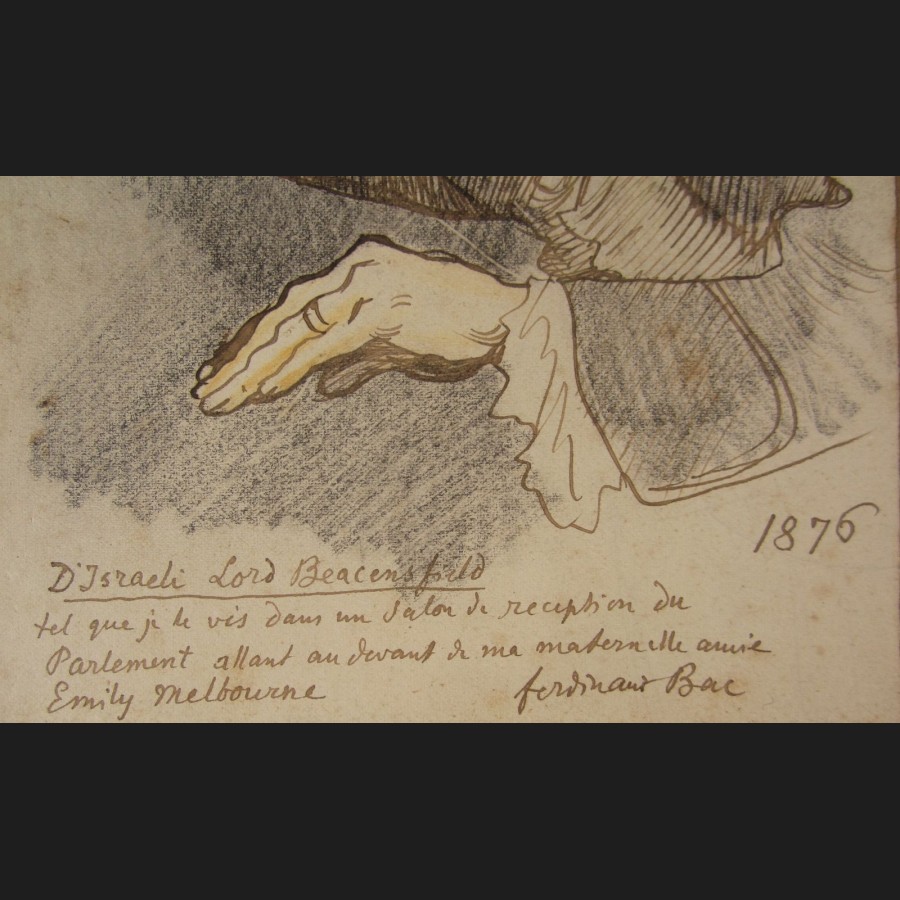 1876
D'Israeli Lord Beacensfield
tel que je le vis dans un Salon de reception du
Parlement allant au devant de ma maternelle amie
Emily Melbourne
ferdinand Bac